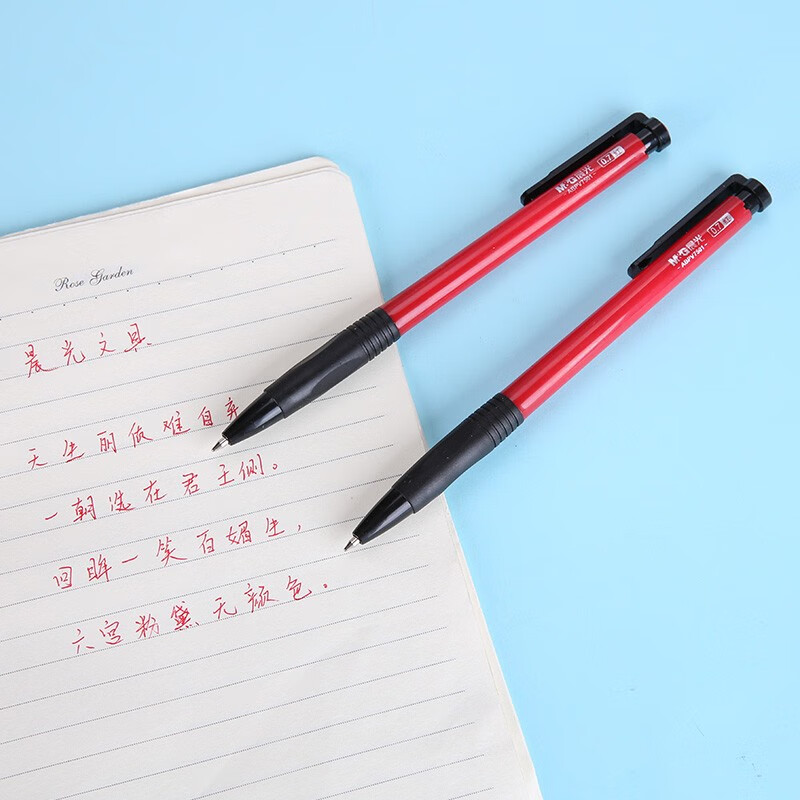 Rose Garden
晨光文具
天生丽质难自弃
一朝选在君王侧。
回眸一笑百媚生，
六宫粉黛无颜色。
M&G晨光 0.7
-ABPV7501-
M&G晨光 0.7
-ABPV7501-